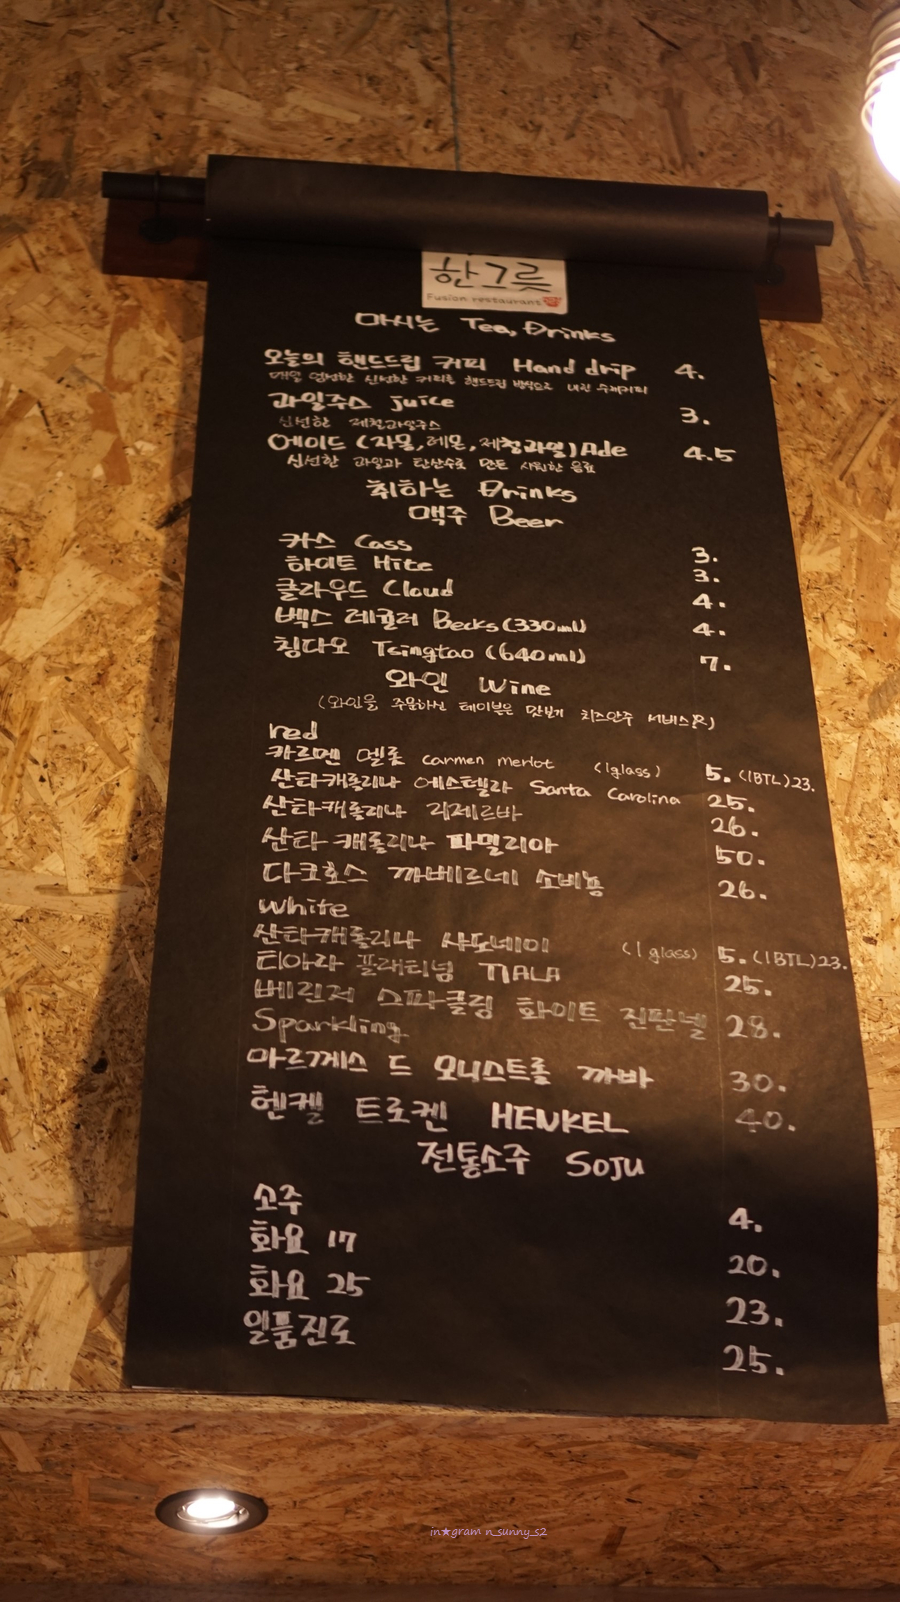 한그릇
Fusion restaurant
마시는 Tea, Drinks
오늘의 핸드드립 커피 Hand drip 4.
매일 엄선한 신선한 커피를 핸드드립 방식으로 내린 수제커피
과일주스 juice 3.
신선한 제철과일주스
에이드 (자몽, 레몬, 제철과일) Ade 4.5
신선한 과일과 탄산수로 만든 시원한 음료
취하는 Drinks
맥주 Beer
카스 Cass 3.
하이트 Hite 3.
클라우드 Cloud 4.
벡스 레귤러 Becks (330ml) 4.
칭다오 Tsingtao (640ml) 7.
와인 Wine
(와인을 주문하신 테이블은 맛보기 치즈안주 서비스)
red
카르멘 멜롯 carmen merlot (1glass) 5. (1BTL)23.
산타캐롤리나 에스텔라 Santa Carolina 25.
산타캐롤리나 리제르바 26.
산타 캐롤리나 파밀리아 50.
다크호스 까베르네 소비뇽 26.
white
산타캐롤리나 샤도네이 (1 glass) 5. (1BTL)23.
티아라 플래티넘 TIALA 25.
베린저 스파클링 화이트 진판델 28.
Sparkling
마르께스 드 모니스트롤 까바 30.
헨켈 트로켄 HENKEL 40.
전통소주 SOJU
소주 4.
화요 17 20.
화요 25 23.
일품진로 25.
in★gram n_sunny_s2